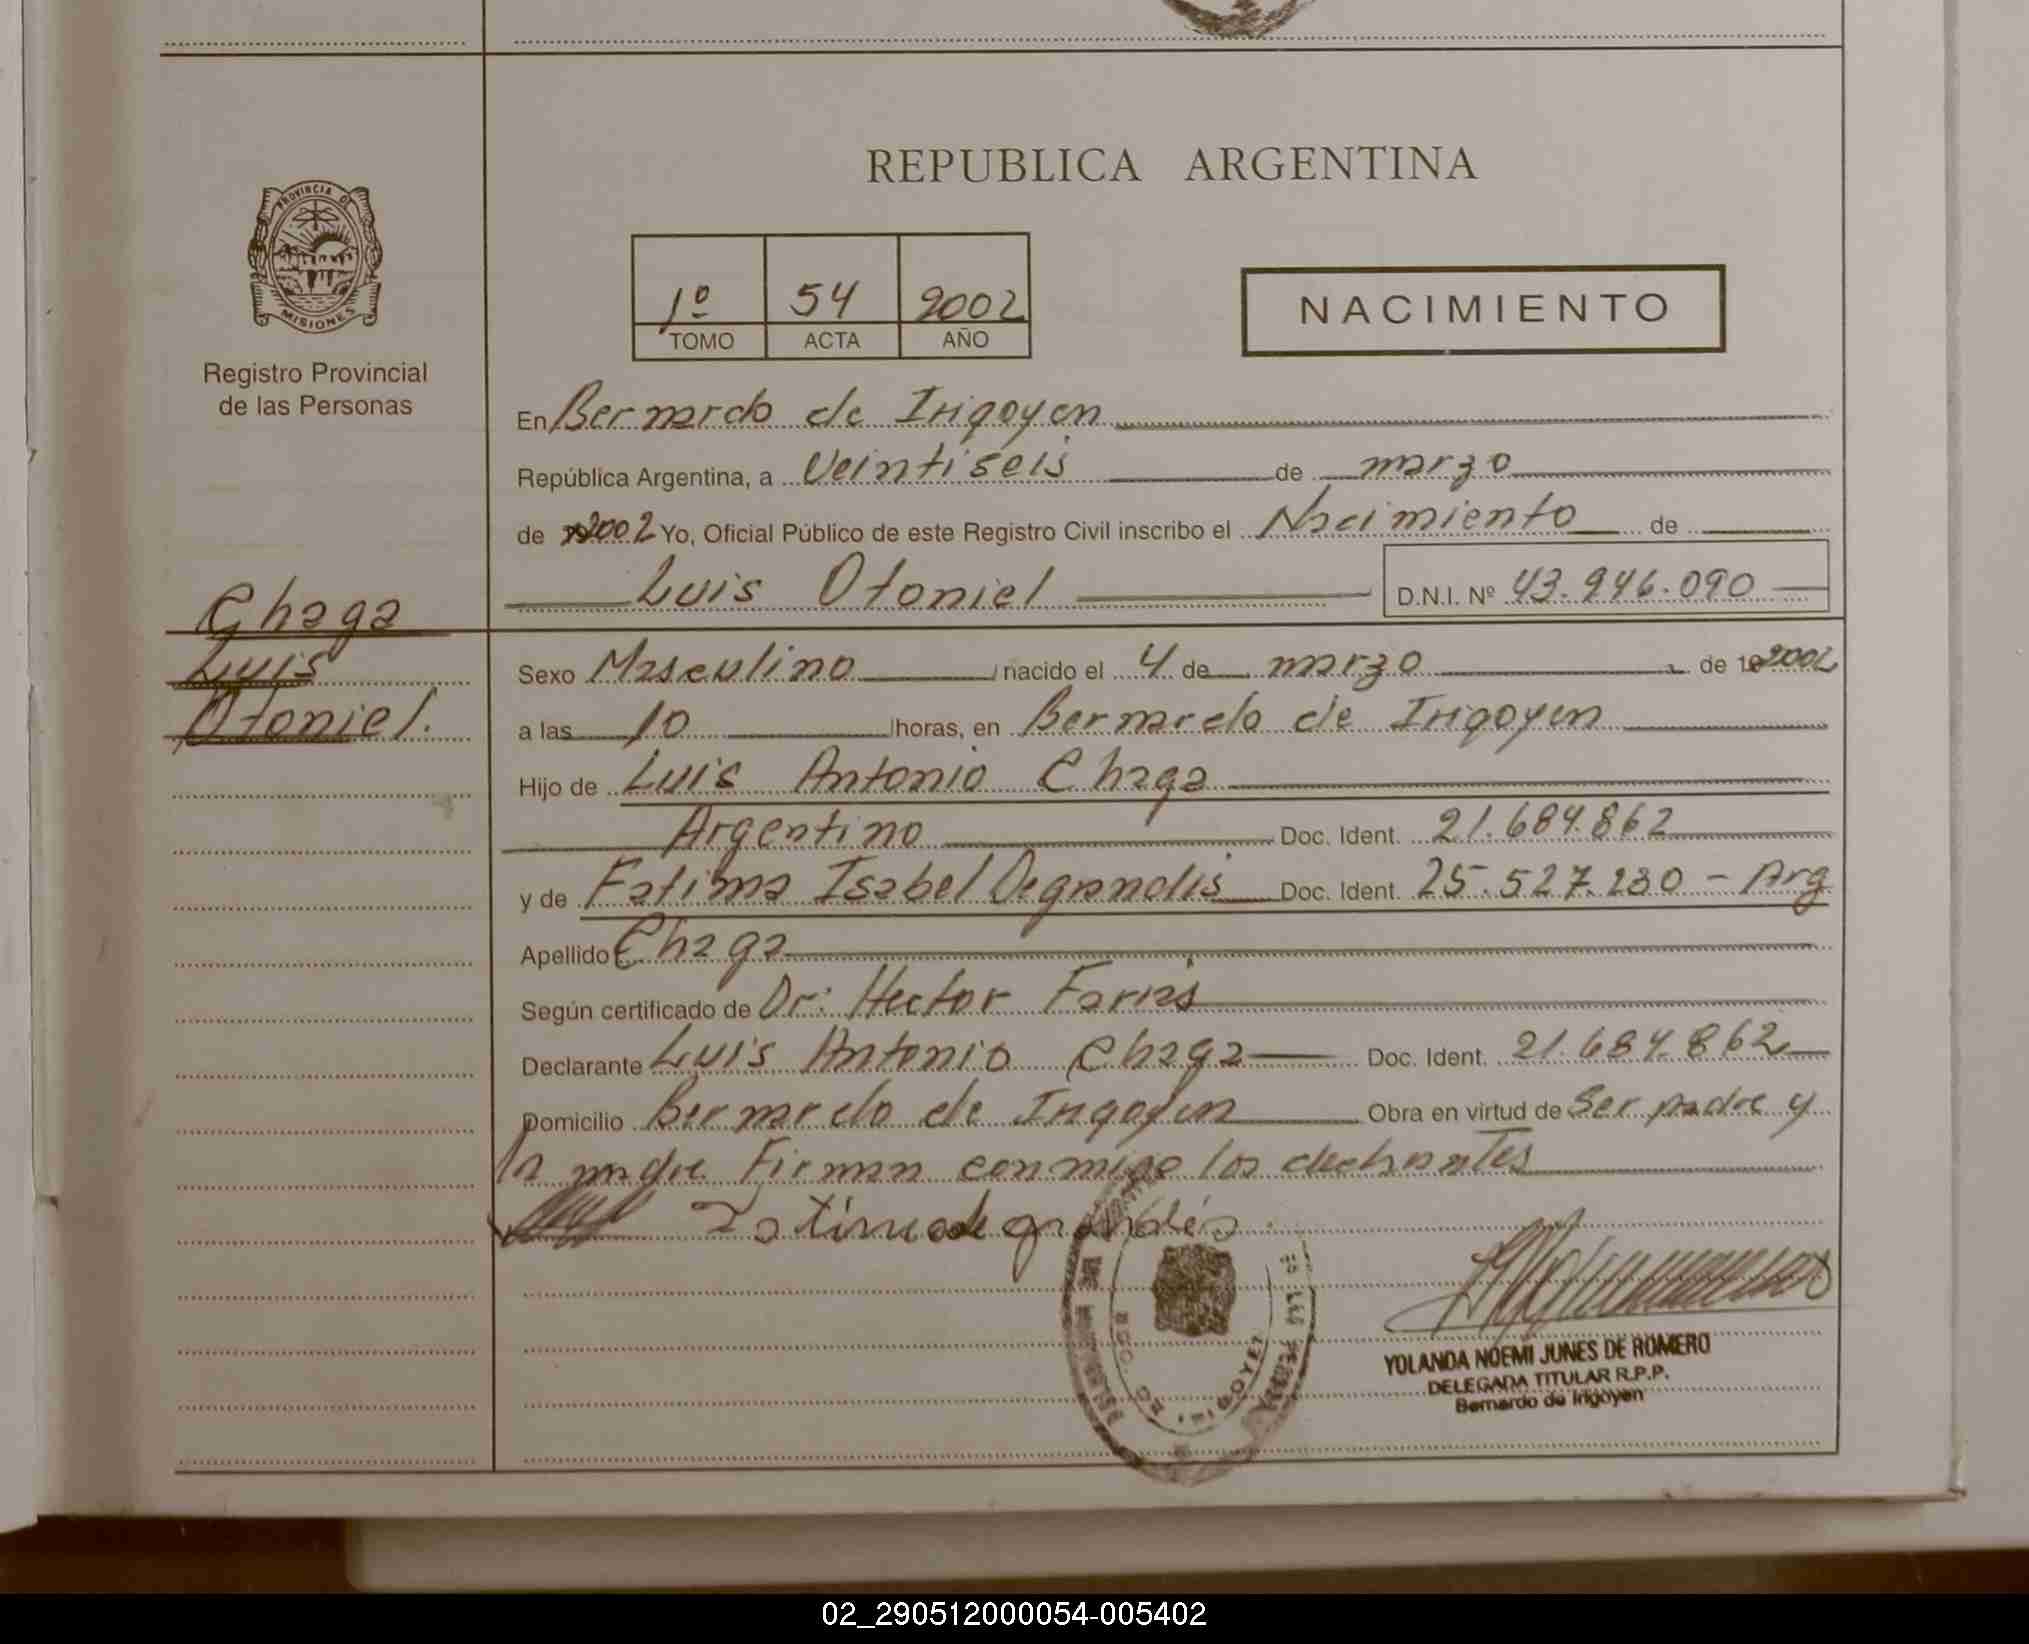 REPUBLICA ARGENTINA
PROVINCIA DE
MISIONES
Registro Provincial
de las Personas
1º 54 2002
TOMO ACTA AÑO
NACIMIENTO
En Bernardo de Irigoyen
República Argentina, a Veintiseis de marzo
de 2002 Yo, Oficial Público de este Registro Civil inscribo el Nacimiento de
Luis Otoniel D.N.I. Nº 43.946.090
Chaga
Luis
Otoniel.
Sexo Masculino nacido el 4 de marzo de 2002
a las 10 horas, en Bernardo de Irigoyen
Hijo de Luis Antonio Chaga
Argentino Doc. Ident. 21.684.862
y de Fatima Isabel Degrandis Doc. Ident. 25.527.230 - Arg
Apellido Chaga
Según certificado de Dr: Hector Farias
Declarante Luis Antonio Chaga Doc. Ident. 21.684.862
Domicilio Bernardo de Irigoyen Obra en virtud de Ser padre y
la madre Firman conmigo los declarantes
YOLANDA NOEMI JUNES DE ROMERO
DELEGADA TITULAR R.P.P.
Bernardo de Irigoyen
02_290512000054-005402